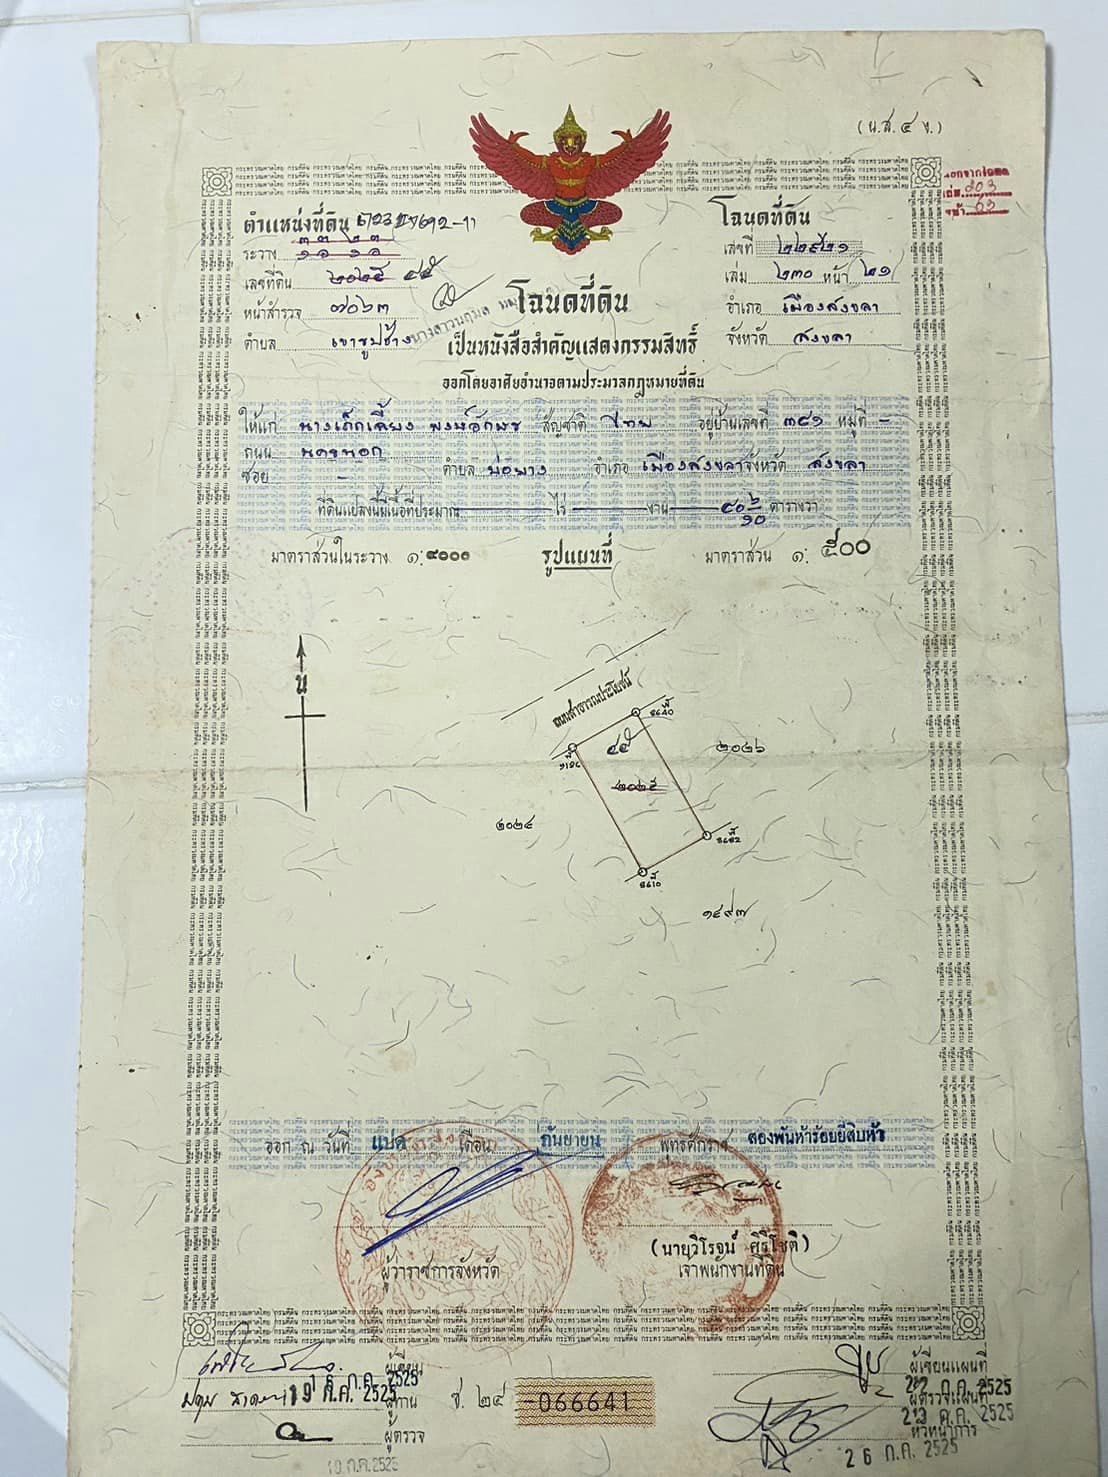 (น.ส. ๔ ง.)
ตำแหน่งที่ดิน
ระวาง
เลขที่ดิน ๒๐๒๕ ๔๕
หน้าสำรวจ ๗๐๖๓
ตำบล เขารูปช้าง
โฉนดที่ดิน
เลขที่ ๒๒๙๒๑
เล่ม ๒๓๐ หน้า ๒๑
อำเภอ เมืองสงขลา
จังหวัด สงขลา
โฉนดที่ดิน
เป็นหนังสือสำคัญแสดงกรรมสิทธิ์
ออกโดยอาศัยอำนาจตามประมวลกฎหมายที่ดิน
ให้แก่ นาง สัญชาติ ไทย อยู่บ้านเลขที่ ๓๔๑ หมู่ที่ -
ถนน นครนอก
ซอย - ตำบล บ่อยาง อำเภอ เมืองสงขลา จังหวัด สงขลา
ที่ดินแปลงนี้มีเนื้อที่ประมาณ ไร่ งาน ๔๐ ๖/๑๐ ตารางวา
มาตราส่วนในระวาง ๑:๔๐๐๐ รูปแผนที่ มาตราส่วน ๑: ๕๐๐
น
ถนนสาธารณประโยชน์
๔๕
๒๐๒๖
๒๐๒๕
๒๐๒๔
๑๔๙๗
ออก ณ วันที่ แปด เดือน กันยายน พุทธศักราช สองพันห้าร้อยยี่สิบห้า
(นายวิโรจน์ ศิริโชติ)
ผู้ว่าราชการจังหวัด
เจ้าพนักงานที่ดิน
ผู้เขียน
ก.ค. 2525
19 ก.ค. 2525 ผู้ทาน
ผู้ตรวจ
ช. ๒๔ 066641
ผู้เขียนแผนที่
ก.ค. 2525
ผู้ตรวจแผนที่
ก.ค. 2525
หัวหน้าการ
26 ก.ค. 2525